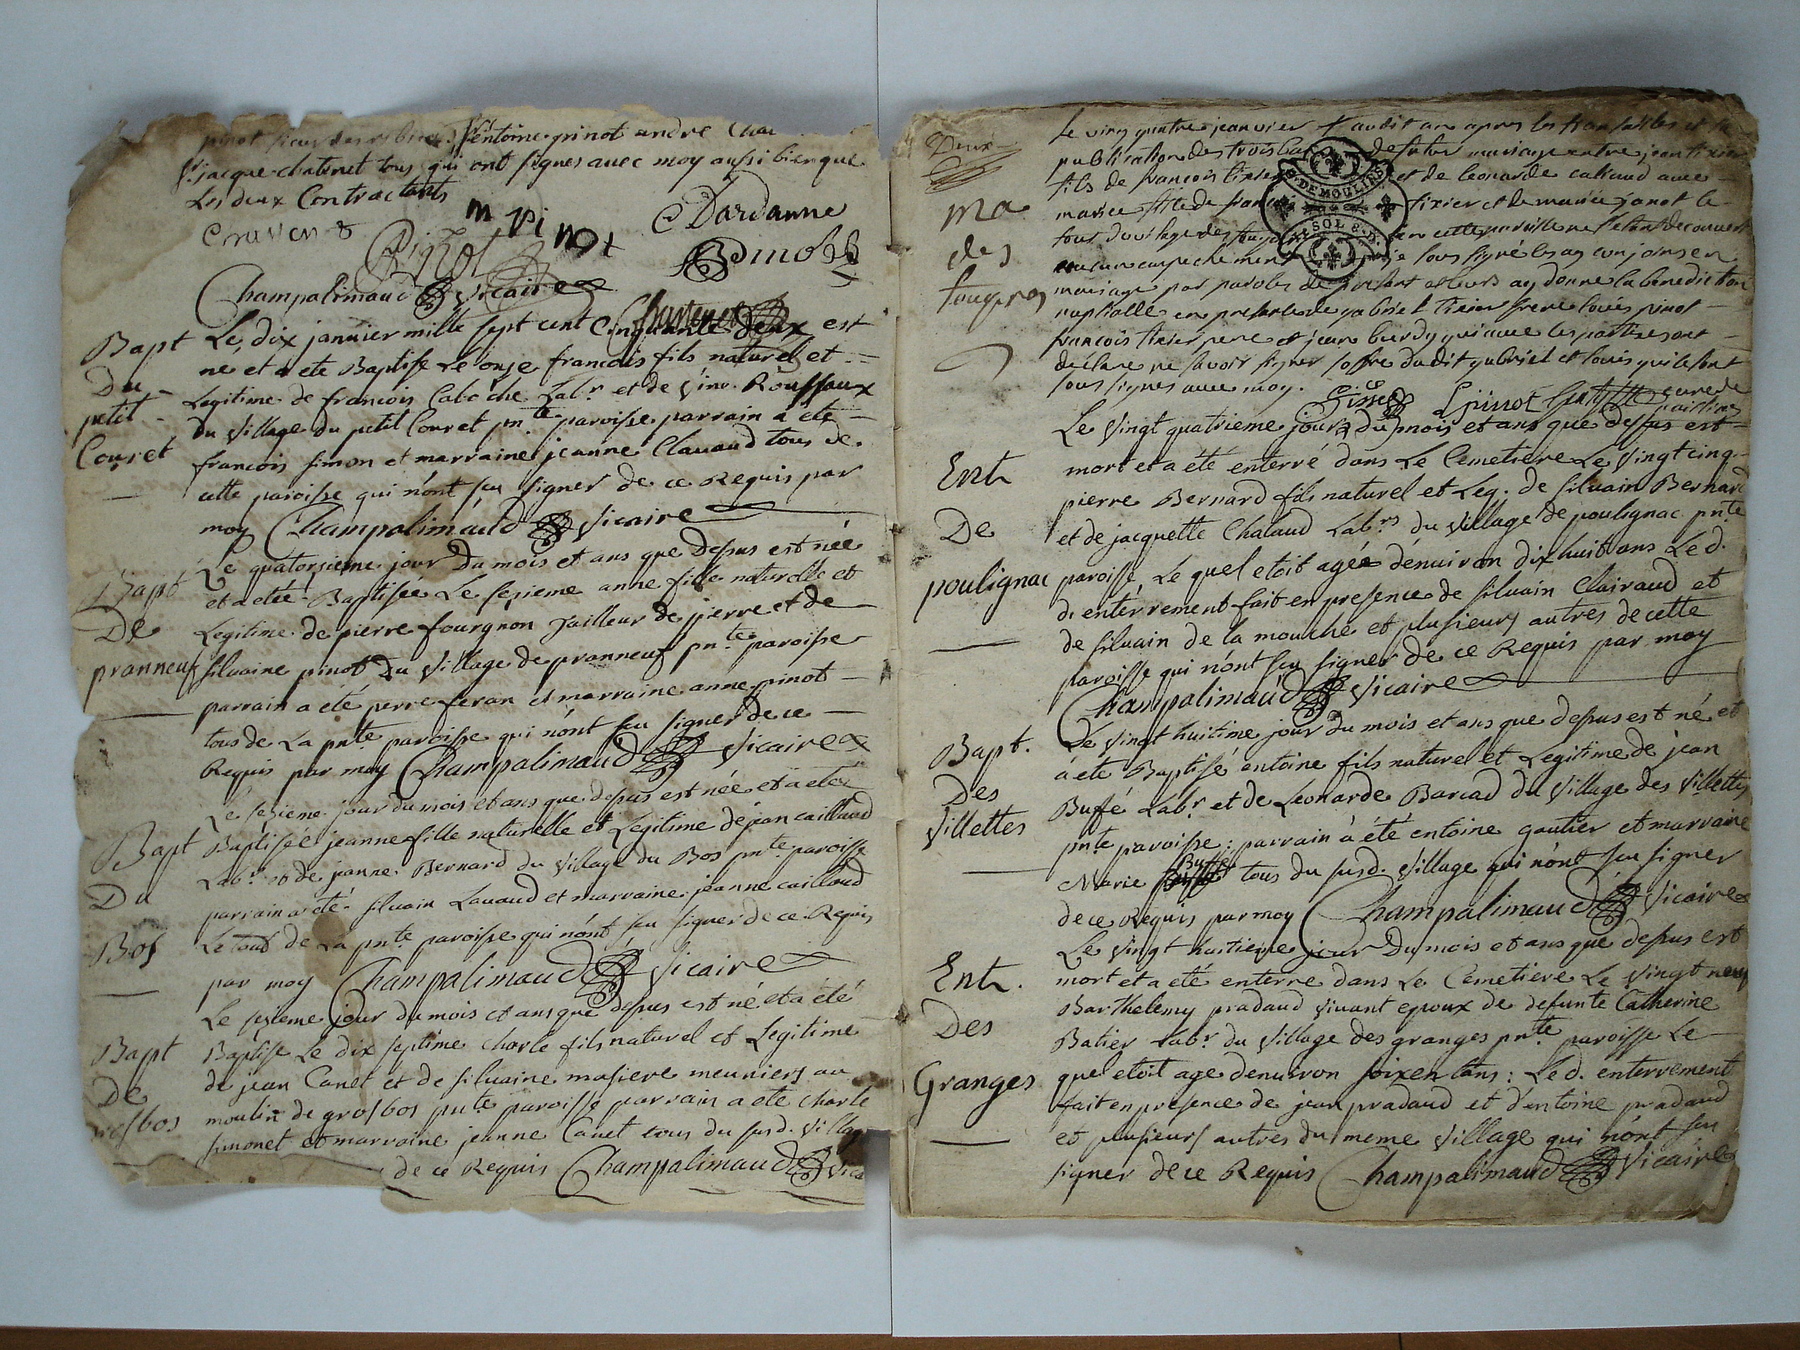 entoine pinot andre
jacque chatenet tous qui ont signes avec moy aussi bien que
Les deux Contractants
m pinot Dardanne
Pinot
Champalimaud Vicaire
Bapt
Du
petit
Couret
Le dix janvier mille sept cent Cinquante deux est
né et a été Baptise Le onze francois fils naturel et
Legitime de francois Caboche Labr et de Rouffaux
du village du petit Couret pnte paroisse parrain a été
francois simon et marraine jeanne Clavaud tous de
cette paroisse qui n'ont seu signer de ce Requis par
moy Champalimaud Vicaire
Bapt
De
pranneuf
Le quatorzieme jour du mois et ans que depus est née
et a étée Baptisée Le sezieme anne fille naturelle et
Legitime de pierre fourgnon tailleur de pierre et de
siluaine pinot Du village de pranneuf pnte paroisse
parrain a été perre feran et marraine anne pinot
tous de La pnte paroisse qui n'ont seu signer de ce
Requis par moy Champalimaud Vicaire
Bapt
Du
Bos
Le sezieme jour du mois et ans que depus est née et a été
Baptisée jeanne fille naturelle et Legitime de jean caillaud
Labr et de jeanne Bernard du village du Bos pnte paroisse
parrain a été siluain Lavaud et marraine jeanne caillaud
Le tout de La pnte paroisse qui n'ont seu signer de ce Requis
par moy Champalimaud Vicaire
Bapt
De
Le sezieme jour du mois et ans que depus est né et a été
Baptise Le dix septime charle fils naturel et Legitime
de jean Canet et de siluaine masiere meuniers au
moulin de grosbos pnte paroisse parrain a été charle
simonet et marraine jeanne Canet tous du susd. village
de ce Requis Champalimaud
Deux
ma
des
Le ving quatre jeanvier audit an apres les
publication des trois de futur mariage entre jean tixier
fils de francois tixier et de leonarde caliaud avec
mariee fille de tixier et de mariee janot le
tout du vilage des cette paroisse ne s'etant decouvert
aucun empechement je sous signé les ay conjoins en
mariage par paroles de present et leurs ay donné la benediction
nuptialle en presence de gabriel tixier frere louis pinot
francois tixier pere et jean burdy qui avec les parties ont
declare ne savoir signer soffre dudit gabriel et louis qui se sont
sous signes avec moy.
G. DE MOULINS
SOL 8 D.
Ent
De
poulignac
Le Vingt quatrieme jour du mois et ans que dessus est
mort et a été enterré dans Le Cemetiere Le Vingt cinq
pierre Bernard fils naturel et Leg. de siluain Bernard
et de jacquette Chalaud Labrs du village de poulignac pnte
paroisse, Le quel etoit agée dénuiron dix huit ans Le d.
d. entérrement fait en presence de siluain Clairaud et
de siluain de la mouche et plusieurs autres de cette
paroisse qui n'ont seu signer de ce Requis par moy
Champalimaud Vicaire
Bapt.
Des
Villettes
Le Vingt huitime jour du mois et ans que depus est né et
à été Baptisé entoine fils naturel et Legitime de jean
Buffé Labr et de Leonarde Barcad du village des Villettes
pnte paroisse; parrain à été entoine gautier et marraine
Marie Buffe tous du susd. village qui n'ont seu signer
de ce Requis par moy Champalimaud Vicaire
Ent.
Des
Granges
Le Vingt huitieme jour Du mois et ans que depus est
mort et a été enterre dans Le Cemetiere Le Vingt neuf
Barthelemy pradaud vivant epoux de defunte Catherine
Batier Labr du village des granges pnte paroisse Le
quel etoit age denuiron soixentans: Le d. enterrement
fait en presence de jean pradaud et d'entoine pradaud
et plusieurs autres du meme village qui n'ont seu
signer de ce Requis Champalimaud Vicaire